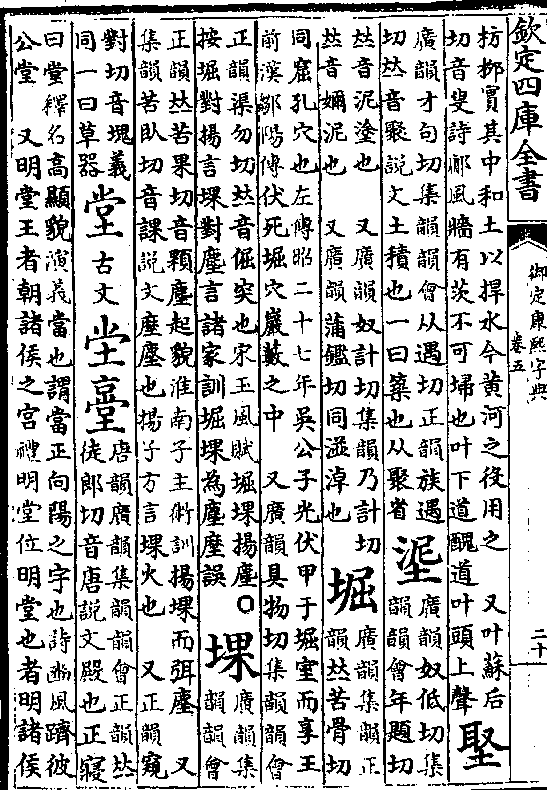 欽定四庫全書
御定康熙字典
卷五
二十
枋桞實其中和土以捍水今黄河之役用之　又叶蘇后
切音叟詩鄘風牆有茨不可埽也叶下道醜道叶頭上聲
埾
廣韻才句切集韻韻會从遇切正韻族遇
切𠀤音聚說文土積也一曰築也从聚省
埿
廣韻奴低切集
韻韻會年題切
𠀤音泥塗也　又廣韻奴計切集韻乃計切
𠀤音嬭泥也　又廣韻蒲鑑切同湴淖也
堀
廣韻集韻正
韻𠀤苦骨切
同窟孔穴也左傳昭二十七年吳公子光伏甲于堀室而享王
前漢鄒陽傳伏死堀穴巖藪之中　又廣韻具物切集韻韻會
正韻渠勿切𠀤音倔突也宋玉風賦堀堁揚塵○
按堀對揚言堁對塵言諸家訓堀堁為塵塵誤
堁
廣韻集
韻韻會
正韻𠀤苦果切音顆塵起貌淮南子主術訓揚堁而弭塵　又
集韻苦臥切音課說文塵塵也揚子方言堁火也　又正韻窺
對切音塊義
同一曰草器
堂
古文
坣𡒉
唐韻廣韻集韻韻會正韻𠀤
徒郎切音唐說文殿也正寢
曰堂釋名高顯貌演義當也謂當正向陽之字也詩豳風躋彼
公堂　又明堂王者朝諸侯之宫禮明堂位明堂也者明諸侯